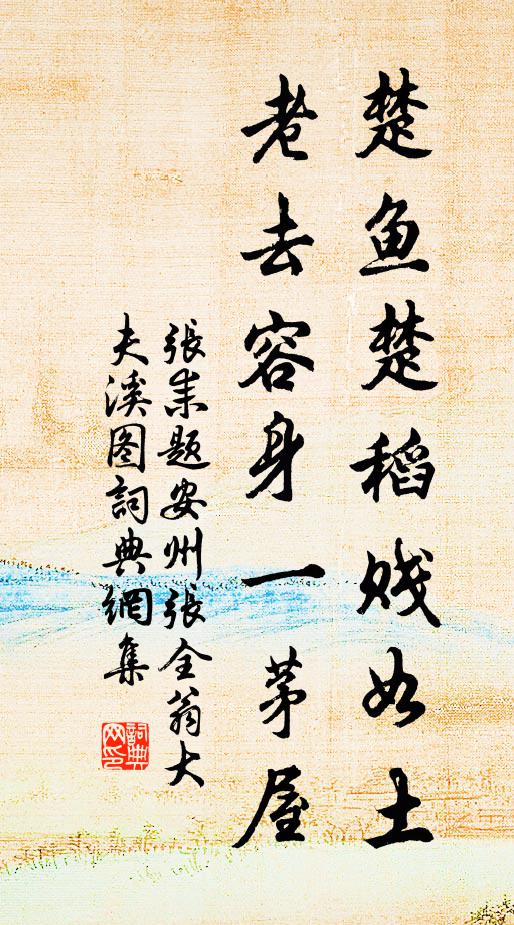 楚鱼楚稻贱如土
老去容身一茅屋
張耒題安州張全翁大
夫溪图詞典網集
詞典
网印